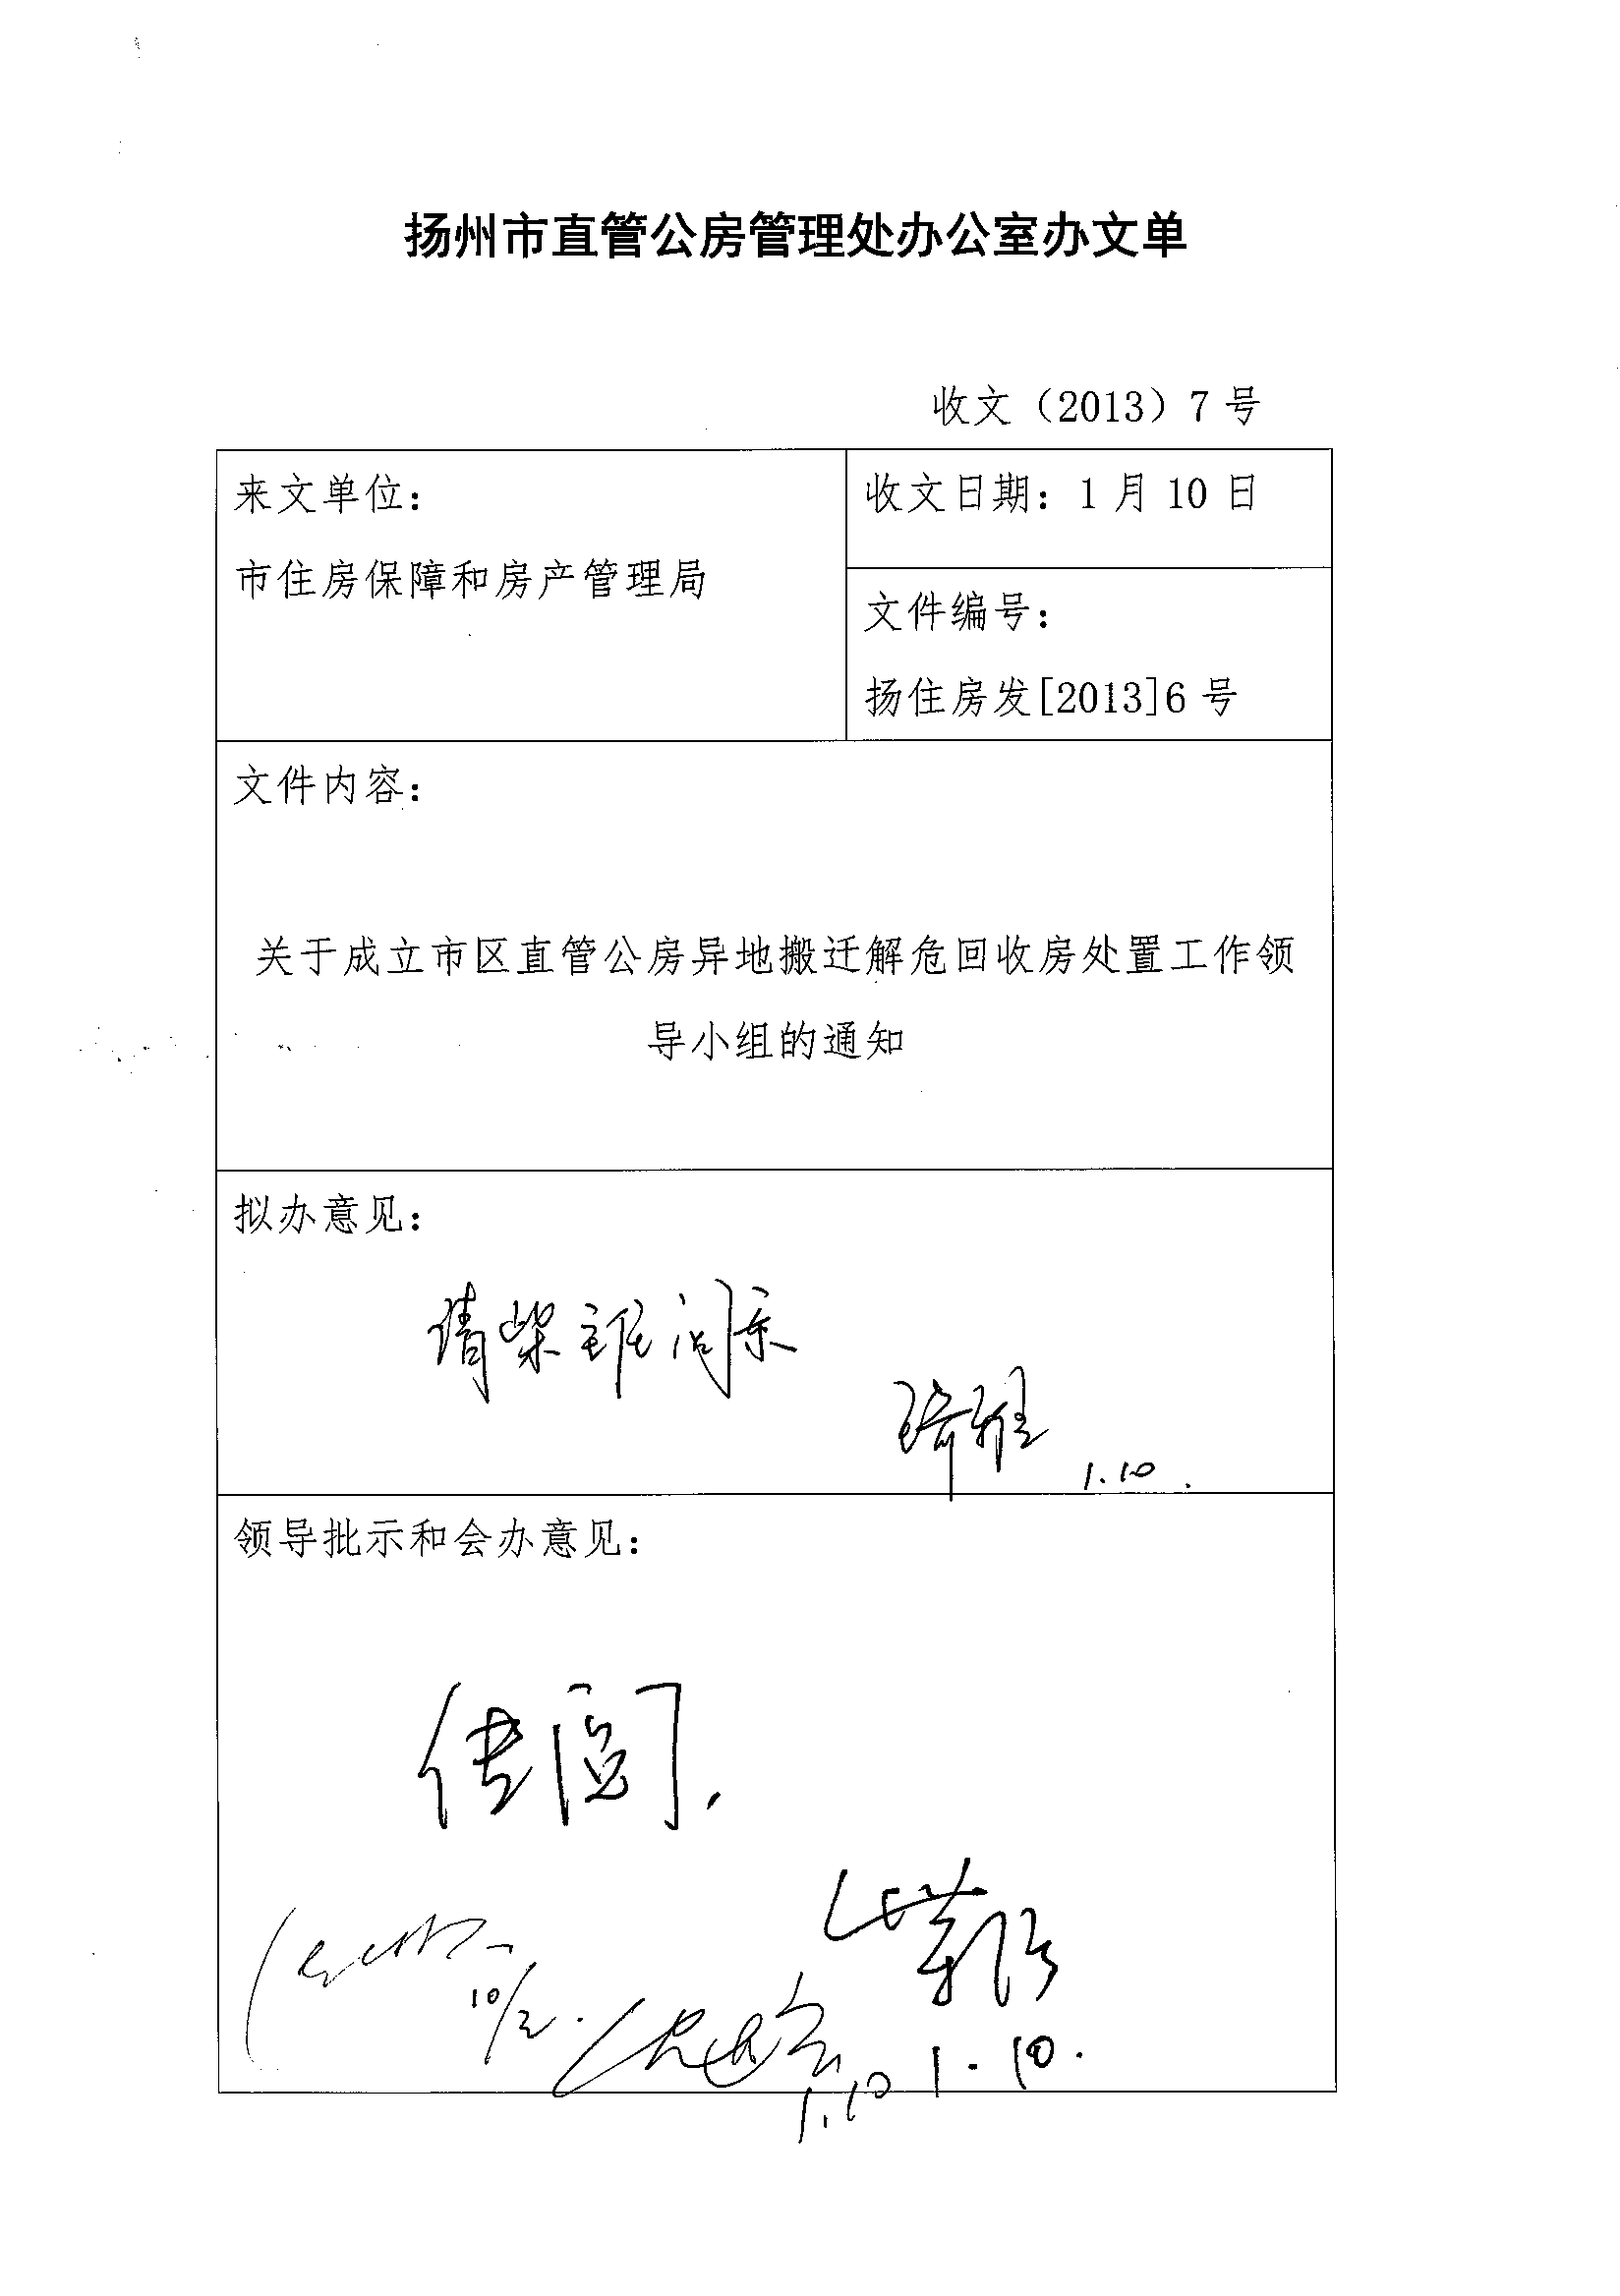 扬州市直管公房管理处办公室办文单
收文（2013）7 号
来文单位：
市住房保障和房产管理局
收文日期：1 月 10 日
文件编号：
扬住房发[2013]6 号
文件内容：
关于成立市区直管公房异地搬迁解危回收房处置工作领
导小组的通知
拟办意见：
请柴主任阅示
1.10.
领导批示和会办意见：
传阅.
10/
1.10.
1.10